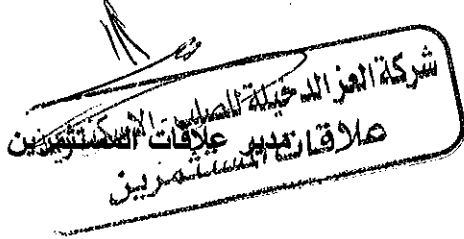 شركة العز الدخيلة للصلب - الإسكندرية
مدير علاقات المستثمرين
علاقات المستثمرين